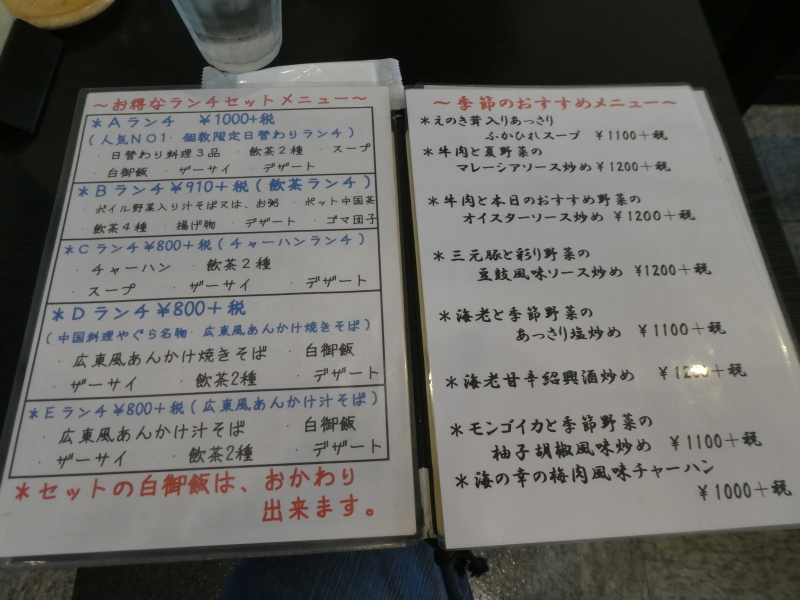 ～お得なランチセットメニュー～
＊Aランチ ￥1000+税
(人気NO1・個数限定日替わりランチ)
・日替わり料理3品 ・飲茶2種 ・スープ
・白御飯 ・ザーサイ ・デザート
＊Bランチ￥910+税(飲茶ランチ)
・ボイル野菜入り汁そば又は、お粥 ・ポット中国茶
・飲茶4種 ・揚げ物 ・デザート ・ゴマ団子
＊Cランチ￥800+税(チャーハンランチ)
・チャーハン ・飲茶2種
・スープ ・ザーサイ ・デザート
＊Dランチ￥800+税
(中国料理やぐら名物・広東風あんかけ焼きそば)
・広東風あんかけ焼きそば ・白御飯
・ザーサイ ・飲茶2種 ・デザート
＊Eランチ￥800+税(広東風あんかけ汁そば)
・広東風あんかけ汁そば ・白御飯
・ザーサイ ・飲茶2種 ・デザート
＊セットの白御飯は、おかわり
出来ます。
～季節のおすすめメニュー～
＊えのき茸入りあっさり
ふかひれスープ ￥1100+税
＊牛肉と夏野菜の
マレーシアソース炒め￥1200+税
＊牛肉と本日のおすすめ野菜の
オイスターソース炒め ￥1200+税
＊三元豚と彩り野菜の
豆鼓風味ソース炒め ￥1200+税
＊海老と季節野菜の
あっさり塩炒め ￥1100+税
＊海老甘辛紹興酒炒め ￥1200+税
＊モンゴイカと季節野菜の
柚子胡椒風味炒め ￥1100+税
＊海の幸の梅肉風味チャーハン
￥1000+税